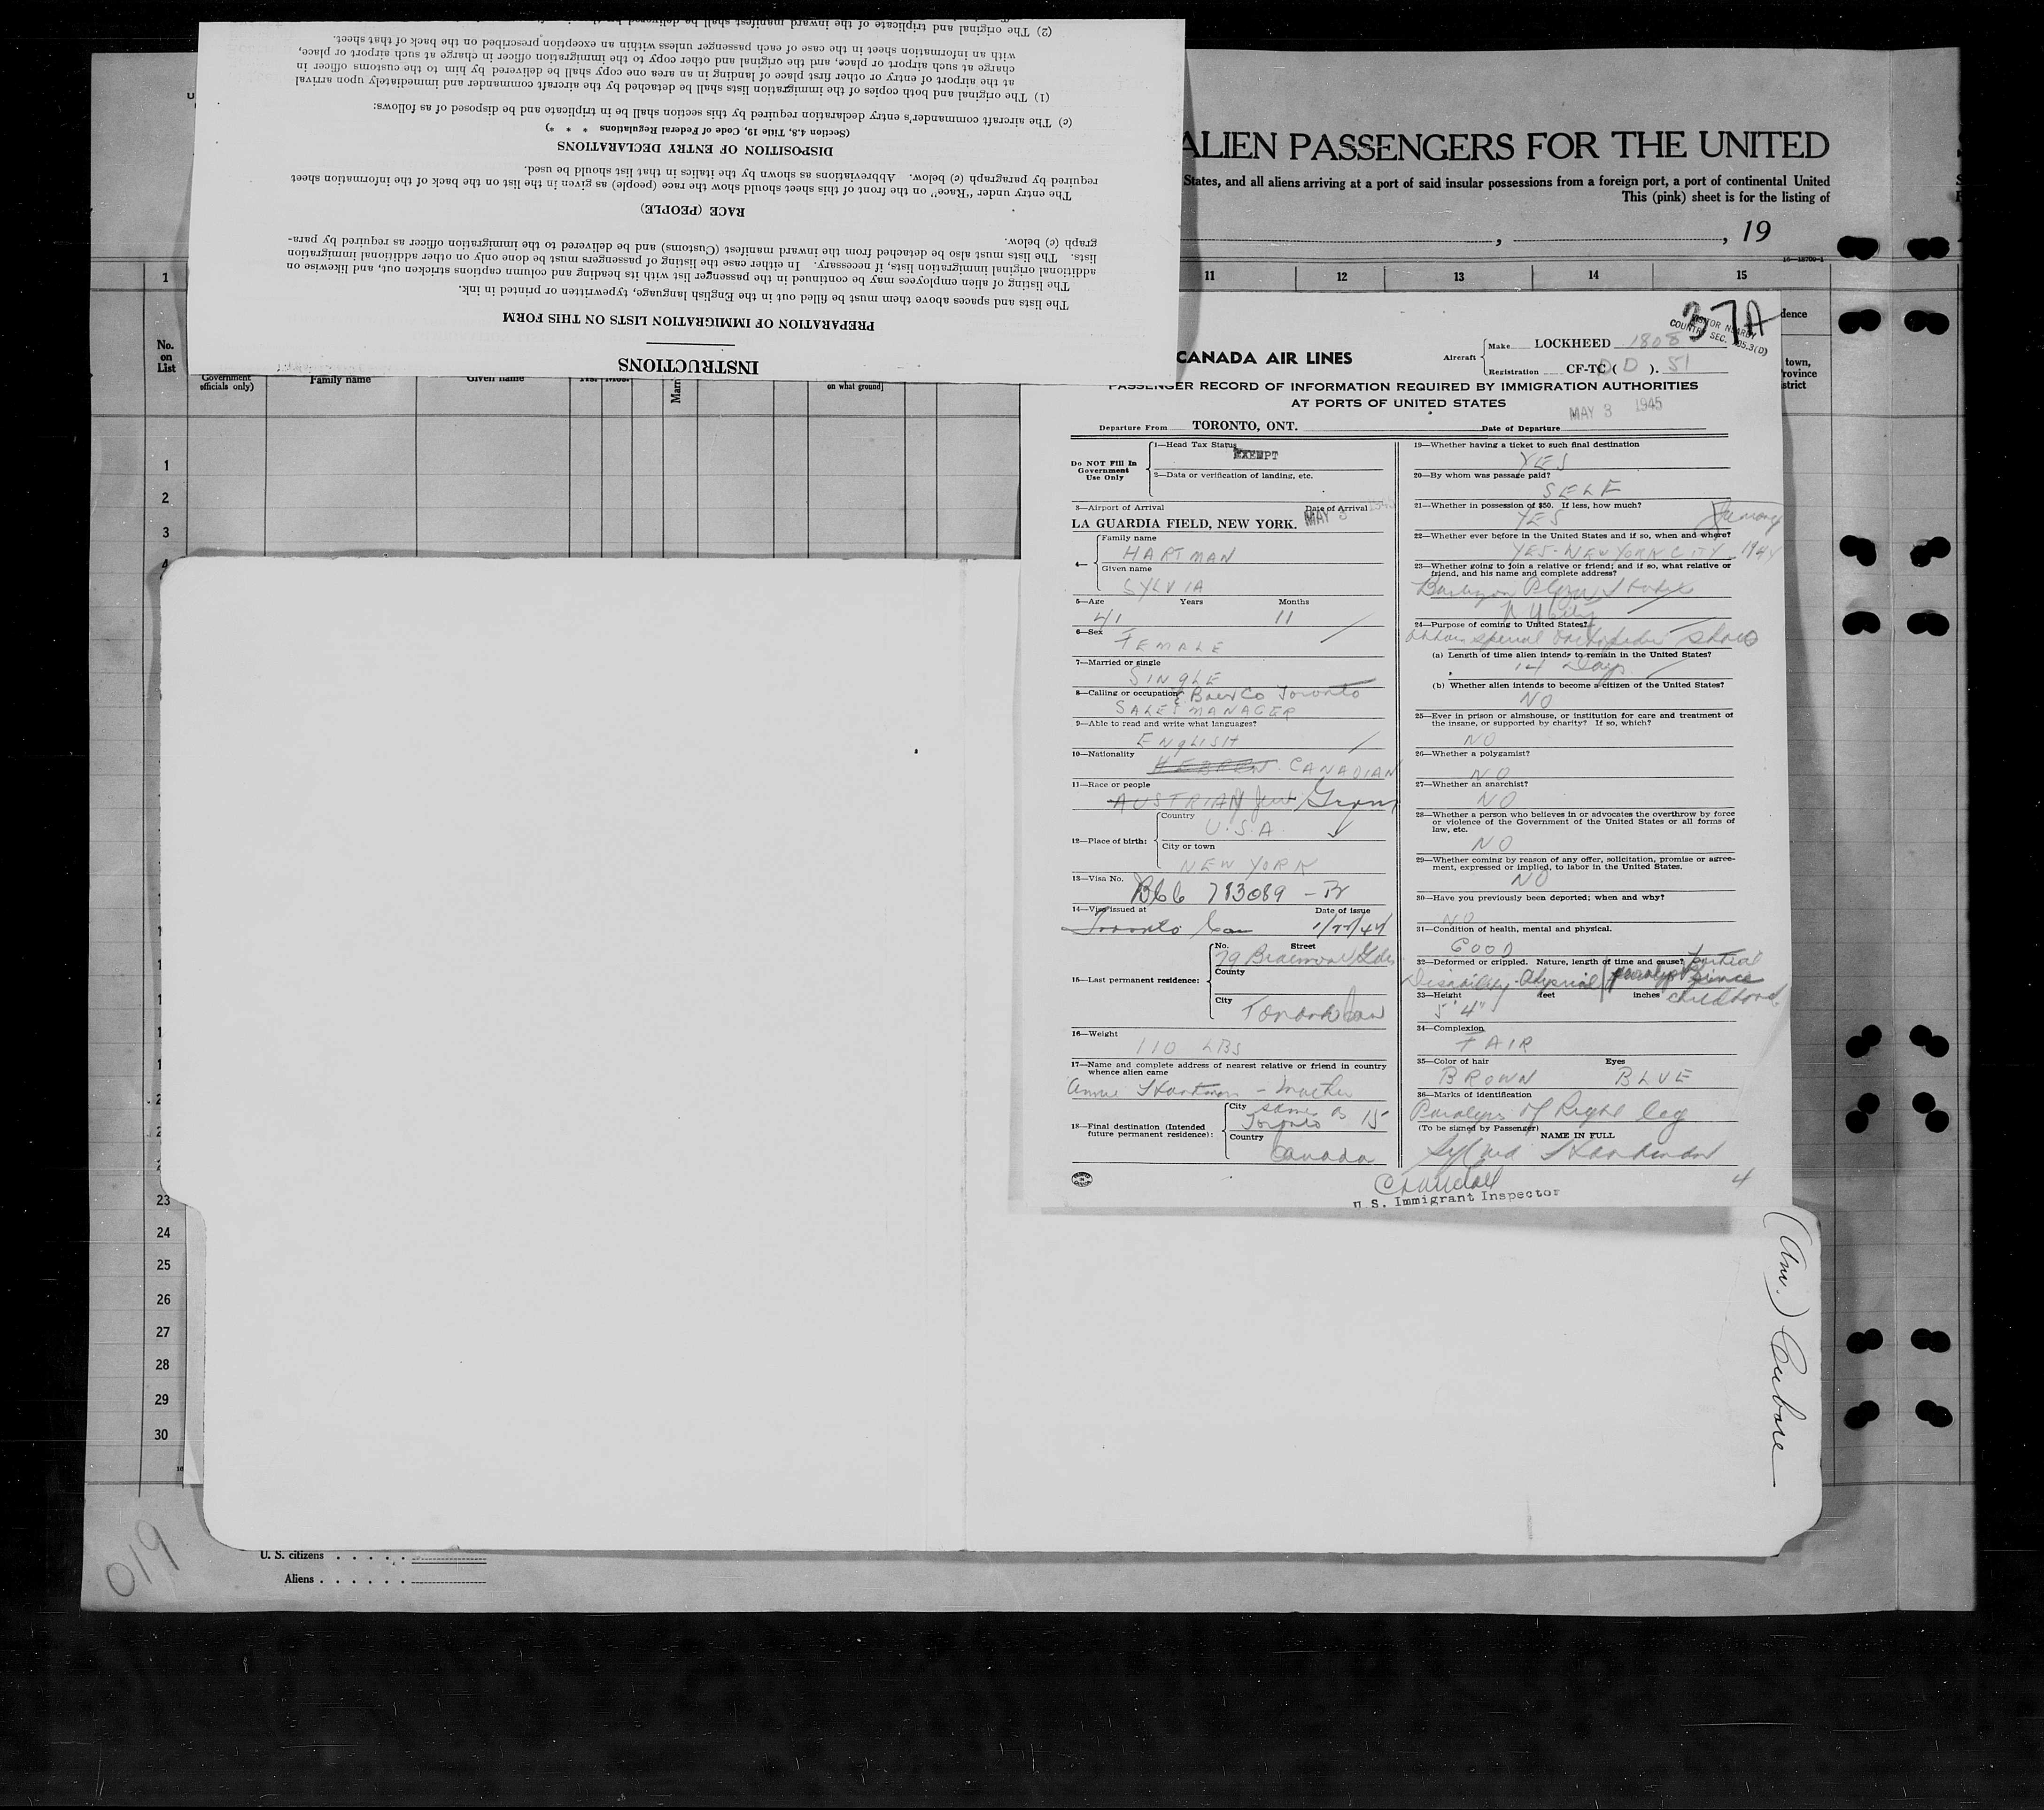 INSTRUCTIONS
PREPARATION OF IMMIGRATION LISTS ON THIS FORM
The lists and spaces above them must be filled out in the English language, typewritten or printed in ink.
The listing of alien employees may be continued in the passenger list with its heading and column captions stricken out, and likewise on
additional original immigration lists, if necessary. In either case the listing of passengers must be done only on other additional immigration
lists. The lists must also be detached from the inward manifest (Customs) and be delivered to the immigration officer as required by para-
graph (c) below.
RACE (PEOPLE)
The entry under "Race" on the front of this sheet should show the race (people) as given in the list on the back of the information sheet
required by paragraph (c) below. Abbreviations as shown by the italics in that list should be used.
DISPOSITION OF ENTRY DECLARATIONS
(Section 4.8, Title 19, Code of Federal Regulations * * *)
(c) The aircraft commander's entry declaration required by this section shall be in triplicate and be disposed of as follows:
(1) The original and both copies of the immigration lists shall be detached by the aircraft commander and immediately upon arrival
at the airport of entry or other first place of landing in an area one copy shall be delivered by him to the customs officer in
charge at such airport or place, and the original and other copy to the immigration officer in charge at such airport or place,
with an information sheet in the case of each passenger unless within an exception prescribed on the back of that sheet.
(2) The original and triplicate of the inward manifest shall be delivered by the
ALIEN PASSENGERS FOR THE UNITED
States, and all aliens arriving at a port of said insular possessions from a foreign port, a port of continental United
This (pink) sheet is for the listing of
, , 19
16—18700-1
1 11 12 13 14 15
No.
on
List
Government
officials only)
Family name
Given name
on what ground]
dence
town,
province
district
37A
VISITOR
COUNTRY SEC.
CANADA AIR LINES
Aircraft
Make LOCKHEED 1808
Registration CF-TC ( D ). 51
PASSENGER RECORD OF INFORMATION REQUIRED BY IMMIGRATION AUTHORITIES
AT PORTS OF UNITED STATES
MAY 3 1945
Departure From TORONTO, ONT. Date of Departure
Do NOT Fill In
Government
Use Only
1—Head Tax Status
EXEMPT
2—Data or verification of landing, etc.
3—Airport of Arrival Date of Arrival
LA GUARDIA FIELD, NEW YORK. MAY 3 1945
4— Family name
HARTMAN
Given name
SYLVIA
5—Age Years Months
41 11
6—Sex
FEMALE
7—Married or single
SINGLE
8—Calling or occupation Co Toronto
SALES MANAGER
9—Able to read and write what languages?
ENGLISH
10—Nationality
HEBREW CANADIAN
11—Race or people
AUSTRIAN
12—Place of birth:
Country
U.S.A.
City or town
NEW YORK
13—Visa No.
B66 783089
14—Visa issued at Date of issue
Toronto Can
15—Last permanent residence:
No. Street
79
County
City
Toronto Can
16—Weight
110 LBS
17—Name and complete address of nearest relative or friend in country
whence alien came
Annie Hartman - Mother
18—Final destination (Intended
future permanent residence):
City same as 15
Toronto
Country
Canada
19—Whether having a ticket to such final destination
YES
20—By whom was passage paid?
SELF
21—Whether in possession of $50. If less, how much?
YES
22—Whether ever before in the United States and if so, when and where?
YES - NEW YORK CITY
23—Whether going to join a relative or friend; and if so, what relative or
friend, and his name and complete address?
Barbizon Plaza Hotel
N Y City
24—Purpose of coming to United States?
obtain special orthopedic shoes
(a) Length of time alien intends to remain in the United States?
14 Days
(b) Whether alien intends to become a citizen of the United States?
NO
25—Ever in prison or almshouse, or institution for care and treatment of
the insane, or supported by charity? If so, which?
NO
26—Whether a polygamist?
NO
27—Whether an anarchist?
NO
28—Whether a person who believes in or advocates the overthrow by force
or violence of the Government of the United States or all forms of
law, etc.
NO
29—Whether coming by reason of any offer, solicitation, promise or agree-
ment, expressed or implied, to labor in the United States.
NO
30—Have you previously been deported; when and why?
NO
31—Condition of health, mental and physical.
GOOD
32—Deformed or crippled. Nature, length of time and cause? partial
Disability - Physical paralysis since
childhood
33—Height feet inches
5' 4"
34—Complexion
FAIR
35—Color of hair Eyes
BROWN BLUE
36—Marks of identification
Paralysis of Right leg
(To be signed by Passenger)
NAME IN FULL
Sylvia Hartman
4
U. S. Immigrant Inspector
1
2
3
4
23
24
25
26
27
28
29
30
U. S. citizens
Aliens
019